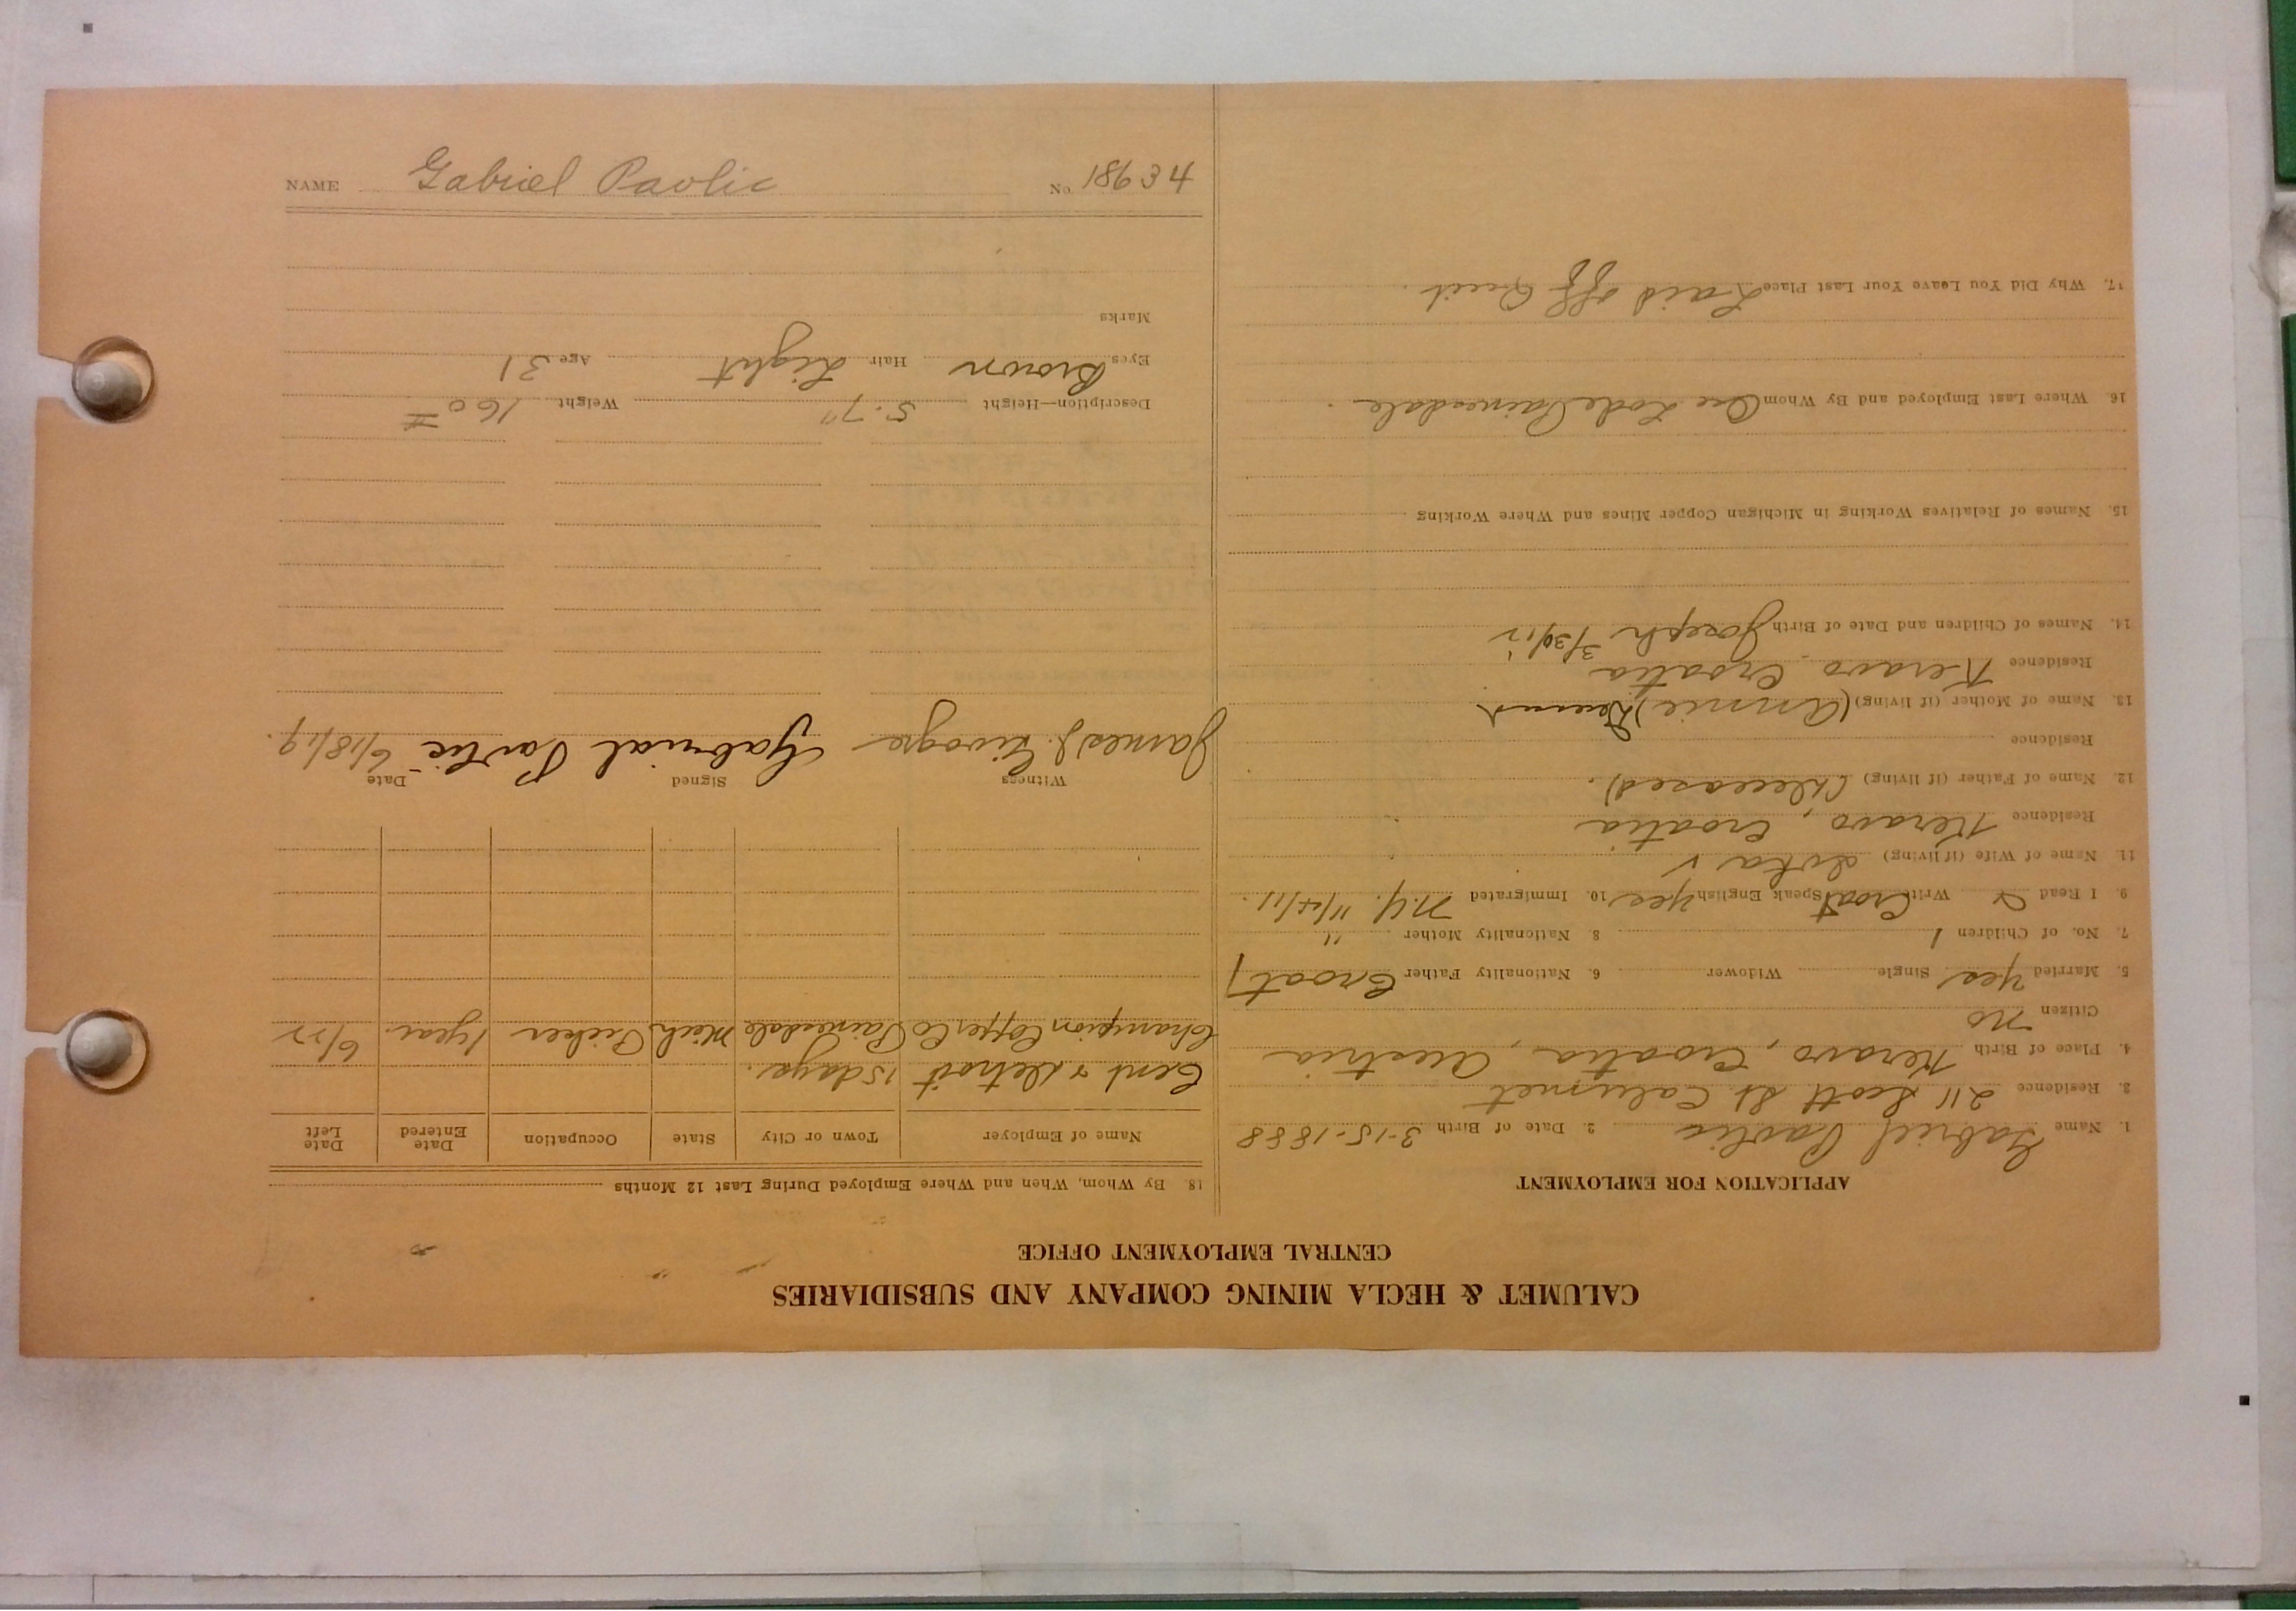 CALUMET & HECLA MINING COMPANY AND SUBSIDIARIES
CENTRAL EMPLOYMENT OFFICE
APPLICATION FOR EMPLOYMENT
1. Name Gabriel Pavlic 2. Date of Birth 3-15-1888
3. Residence 211 Scott St Calumet
4. Place of Birth Keravo, Croatia, Austria
Citizen No
5. Married Yes Single Widower 6. Nationality Father Croat
7. No. of Children 1 8. Nationality Mother "
9. I Read & Write Croat Speak English Yes 10. Immigrated N.Y. 11/5/11.
11. Name of Wife (if living)
Residence Keravo, Croatia
12. Name of Father (if living) (Deceased).
Residence
13. Name of Mother (if living) (Annie)
Residence Keravo Croatia
14. Names of Children and Date of Birth Joseph 3/30/12
15. Names of Relatives Working in Michigan Copper Mines and Where Working
16. Where Last Employed and By Whom Ore Lode Painesdale.
17. Why Did You Leave Your Last Place Laid off Quit.
18. By Whom, When and Where Employed During Last 12 Months
Name of Employer Town or City State Occupation Date Entered Date Left
& Detroit 15 days.
Champion Copper Co Painesdale Mich 1 year.
Witness Signed Date
James J. Gabrial Pavlic 6/18/19.
Description—Height 5.7" Weight 160 #
Eyes Brown Hair Light Age 31
Marks
NAME Gabriel Pavlic No. 18934